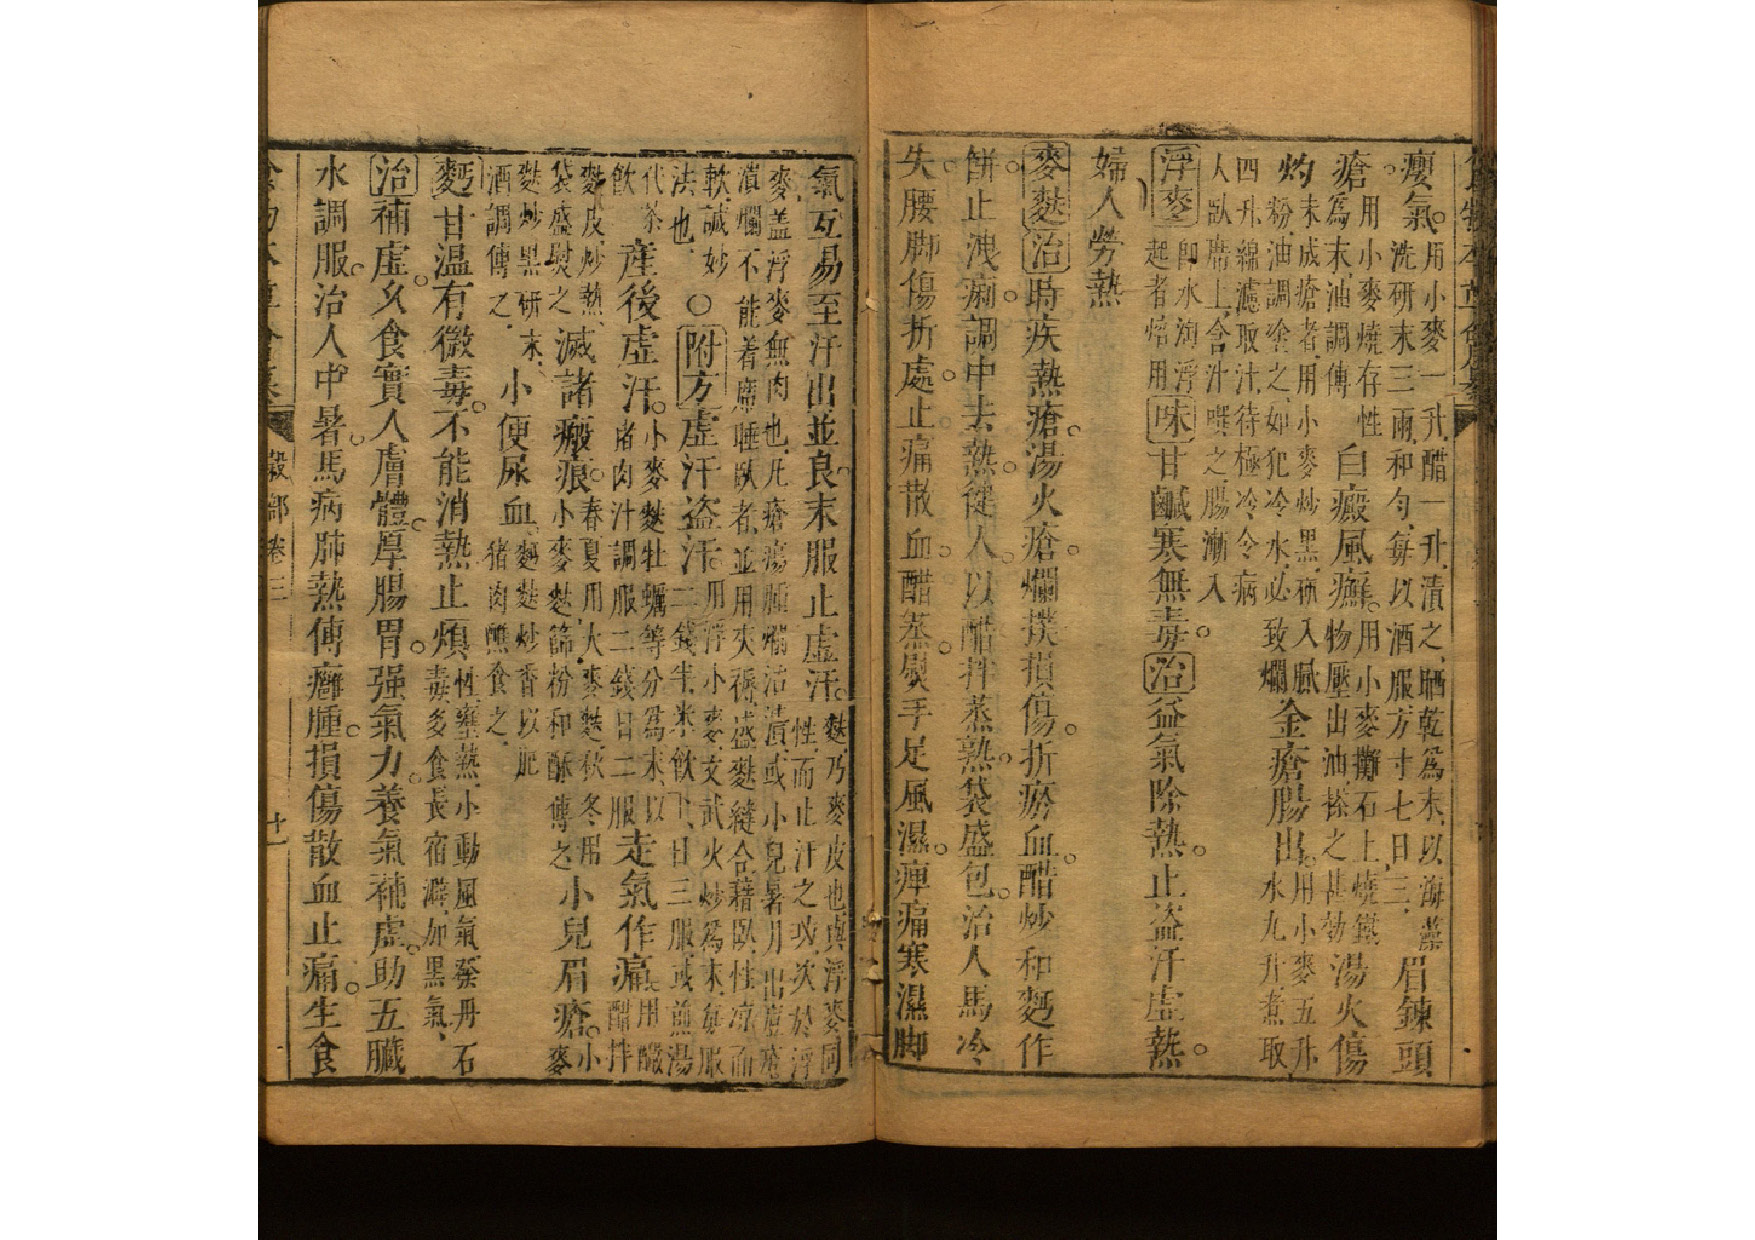 癭氣。用小麥一升醋一升漬之晒乾爲末以海藻洗研末三兩和勻每以酒服方寸七日三眉鍊頭
瘡。用小麥燒存性爲末油調傅白癜風癬。用小麥攤石上燒鐵物壓出油搽之甚効湯火傷
灼未成瘡者用小麥炒黑硏入膩粉油調塗之如犯冷水必致爛金瘡腸出。用小麥五升水九升煮取
四升綿濾取汁待極冷令病人臥席上含汁噀之腸漸入
浮麥卽水淘浮起者焙用味甘鹹寒無毒。治益氣除熱。止盜汗虛熱。
婦人勞熱
麥麩治時疾熱瘡。湯火瘡。爛撲損傷。折瘀血。醋炒和麪作
餅。止洩痢。調中去熱。健人。以醋拌蒸熱。袋盛包。治人馬冷
失。腰脚傷折處。止痛散血。醋蒸。熨手足風濕。痺痛寒濕脚
氣互易至汗出並良末服止虛汗。麩乃麥皮也與浮麥同性而止汗之功次於浮
麥葢浮麥無肉也凡瘡瘍腫爛沾漬或小兒暑月出痘瘡潰爛不能着席睡臥者並用夾褥盛麩縫合藉臥性凉而
軟誠妙法也○附方虛汗盜汗。用浮小麥文武火炒爲末每服二錢半米飲下日三服或煎湯
代茶飲產後虛汗。小麥麩牡蠣等分爲末以猪肉汁調服二錢日二服走氣作痛用釅醋拌
麥皮炒熱袋盛熨之滅諸瘢痕。春夏用大麥麩秋冬用小麥麩篩粉和酥傅之小兒眉瘡。小麥
麩炒黑研末酒調傅之小便尿血麪麩炒香以肥猪肉蘸食之
麪甘溫有微毒。不能消熱止煩性壅熱小動風氣發丹石毒多食長宿澼加黑氣
治補虛。久食實人膚體。厚腸胃。强氣力。養氣補虛。助五臟
水調服。治人中暑。馬病肺熱傅癰腫。損傷散血止痛。生食
穀部卷三　十一